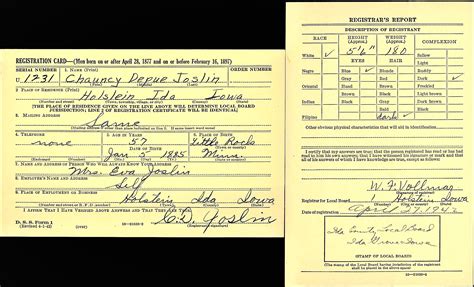 REGISTRATION CARD—(Men born on or after April 28, 1877 and on or before February 16, 1897)
SERIAL NUMBER 1. NAME (Print) ORDER NUMBER
U 1231 Chauncy Depue Joslin
2. PLACE OF RESIDENCE (Print)
Holstein Ida Iowa
(Number and street) (Town, township, village, or city) (County) (State)
[THE PLACE OF RESIDENCE GIVEN ON THE LINE ABOVE WILL DETERMINE LOCAL BOARD
JURISDICTION; LINE 2 OF REGISTRATION CERTIFICATE WILL BE IDENTICAL]
3. MAILING ADDRESS
Same
[Mailing address if other than place indicated on line 2. If same insert word same]
4. TELEPHONE 5. AGE IN YEARS 6. PLACE OF BIRTH
none 57 Little Rock
DATE OF BIRTH
Jan 5 1885 Minn.
7. NAME AND ADDRESS OF PERSON WHO WILL ALWAYS KNOW YOUR ADDRESS
Mrs. Eva Joslin
8. EMPLOYER'S NAME AND ADDRESS
Self
9. PLACE OF EMPLOYMENT OR BUSINESS
Holstein Ida Iowa
(Number and street or R. F. D. number) (Town) (County) (State)
I AFFIRM THAT I HAVE VERIFIED ABOVE ANSWERS AND THAT THEY ARE TRUE.
D. S. S. Form 1
(Revised 4-1-42)
C. D. Joslin
REGISTRAR'S REPORT
DESCRIPTION OF REGISTRANT
RACE HEIGHT (Approx.) WEIGHT (Approx.) COMPLEXION
White 5' 6" 180 Sallow
Light
EYES HAIR Ruddy
Negro Blue Blonde Dark
Gray Red Freckled
Oriental Hazel Brown Light brown
Brown Black Dark brown
Indian Black Gray Black
Bald
Filipino
Other obvious physical characteristics that will aid in identification
I certify that my answers are true; that the person registered has read or has
had read to him his own answers; that I have witnessed his signature or mark and that
all of his answers of which I have knowledge are true, except as follows:
W. F. Vollmar
Registrar for Local Board Holstein Iowa
Date of registration April 27, 1942
Ida County Local Board
Ida Grove Iowa
STAMP OF LOCAL BOARD
(The stamp of the Local Board having jurisdiction of the registrant
shall be placed in the above space)